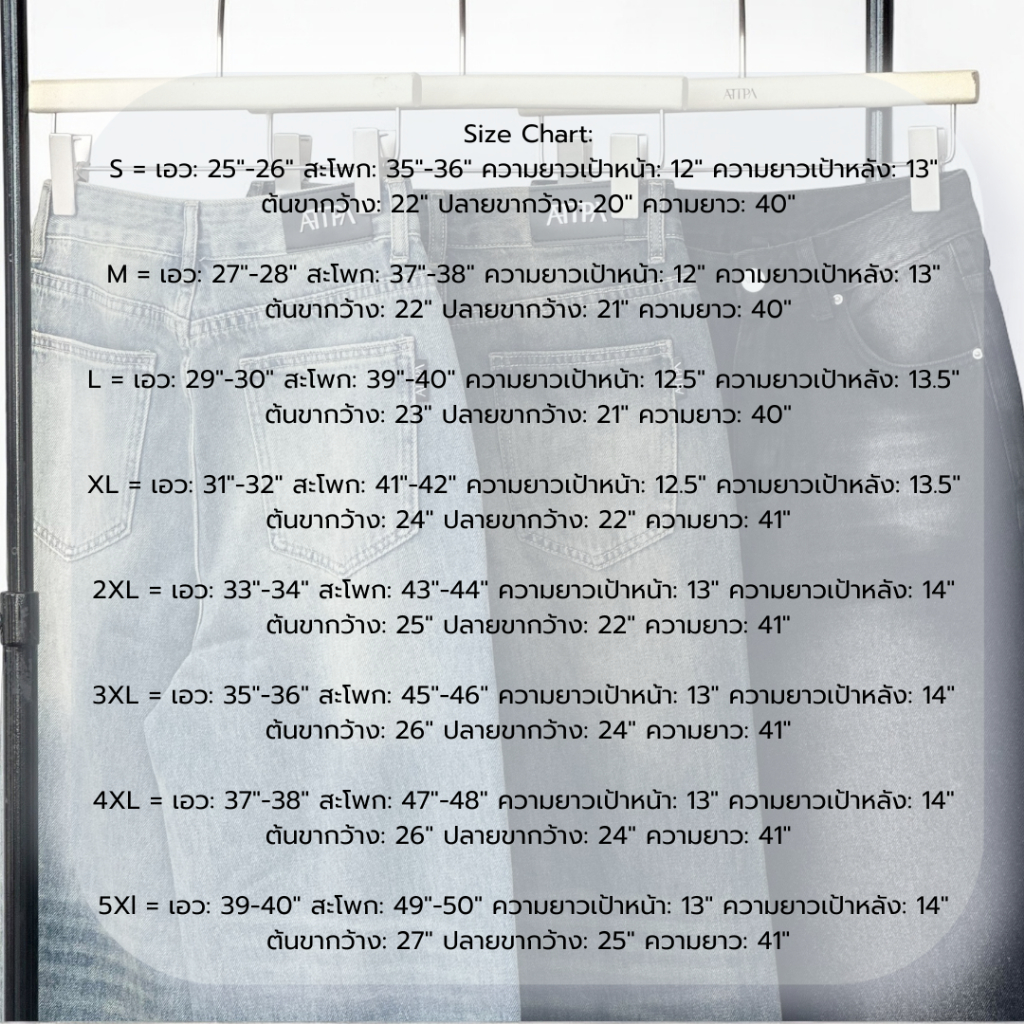 ATTPA
Size Chart:
S = เอว: 25"-26" สะโพก: 35"-36" ความยาวเป้าหน้า: 12" ความยาวเป้าหลัง: 13"
ต้นขากว้าง: 22" ปลายขากว้าง: 20" ความยาว: 40"
ATTPA
ATTPA
M = เอว: 27"-28" สะโพก: 37"-38" ความยาวเป้าหน้า: 12" ความยาวเป้าหลัง: 13"
ต้นขากว้าง: 22" ปลายขากว้าง: 21" ความยาว: 40"
L = เอว: 29"-30" สะโพก: 39"-40" ความยาวเป้าหน้า: 12.5" ความยาวเป้าหลัง: 13.5"
ต้นขากว้าง: 23" ปลายขากว้าง: 21" ความยาว: 40"
XL = เอว: 31"-32" สะโพก: 41"-42" ความยาวเป้าหน้า: 12.5" ความยาวเป้าหลัง: 13.5"
ต้นขากว้าง: 24" ปลายขากว้าง: 22" ความยาว: 41"
2XL = เอว: 33"-34" สะโพก: 43"-44" ความยาวเป้าหน้า: 13" ความยาวเป้าหลัง: 14"
ต้นขากว้าง: 25" ปลายขากว้าง: 22" ความยาว: 41"
3XL = เอว: 35"-36" สะโพก: 45"-46" ความยาวเป้าหน้า: 13" ความยาวเป้าหลัง: 14"
ต้นขากว้าง: 26" ปลายขากว้าง: 24" ความยาว: 41"
4XL = เอว: 37"-38" สะโพก: 47"-48" ความยาวเป้าหน้า: 13" ความยาวเป้าหลัง: 14"
ต้นขากว้าง: 26" ปลายขากว้าง: 24" ความยาว: 41"
5Xl = เอว: 39-40" สะโพก: 49"-50" ความยาวเป้าหน้า: 13" ความยาวเป้าหลัง: 14"
ต้นขากว้าง: 27" ปลายขากว้าง: 25" ความยาว: 41"